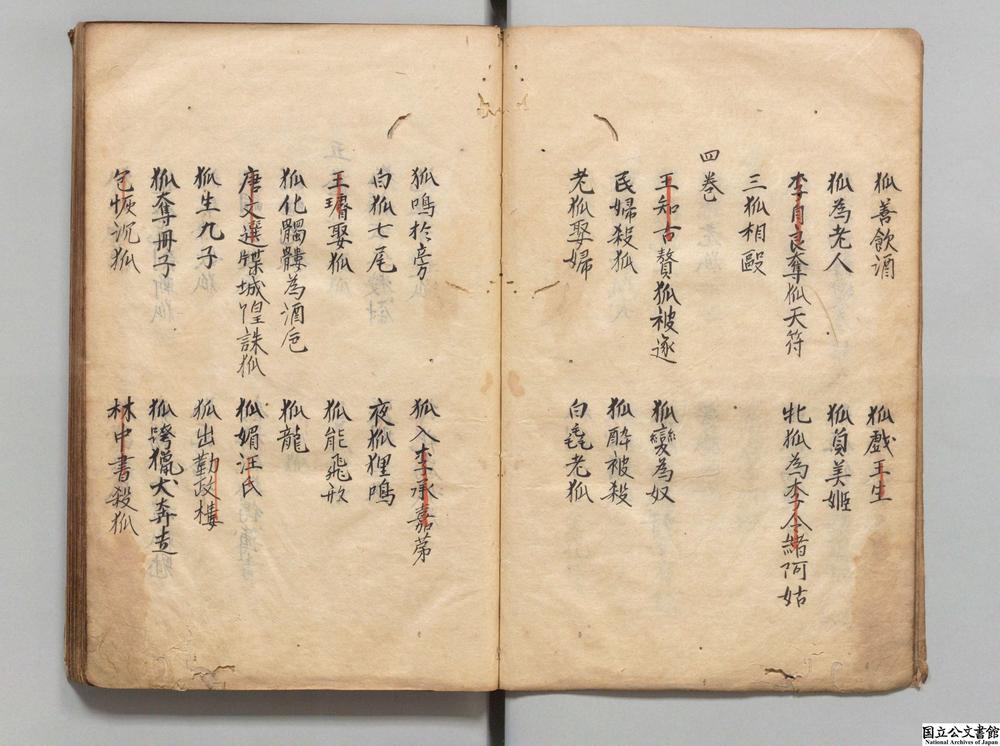 狐善飲酒　狐戲王生
狐為老人　狐負美姬
李自良奪狐天符　牝狐為李令緒阿姑
三狐相毆
四巻
王知古贅狐被逐　狐變為奴
民婦殺狐　狐醉被殺
老狐娶婦　白毳老狐
狐鳴於旁　狐入李承嘉第
白狐七尾　夜狐狸鳴
王璿娶狐　狐能飛形
狐化髑髏為酒卮　狐龍
唐文選牒城隍誅狐　狐媚汪氏
狐生九子　狐出勤政樓
狐奪冊子　狐跨獵犬奔走
包恢沉狐　林中書殺狐
国立公文書館
National Archives of Japan